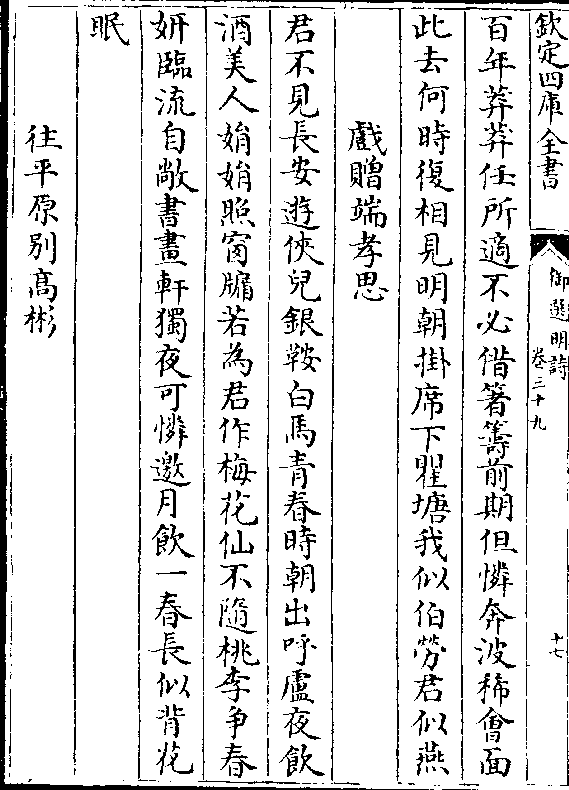 欽定四庫全書
御選明詩
卷三十九
十七
百年莽莽任所適不必借箸籌前期但憐奔波稀會面
此去何時復相見明朝掛席下瞿塘我似伯勞君似燕
戲贈端孝思
君不見長安遊俠兒銀鞍白馬青春時朝出呼盧夜飲
酒美人娟娟照窗牖若為君作梅花仙不隨桃李爭春
妍臨流自敞書畫軒獨夜可憐邀月飲一春長似背花
眠
往平原別高彬